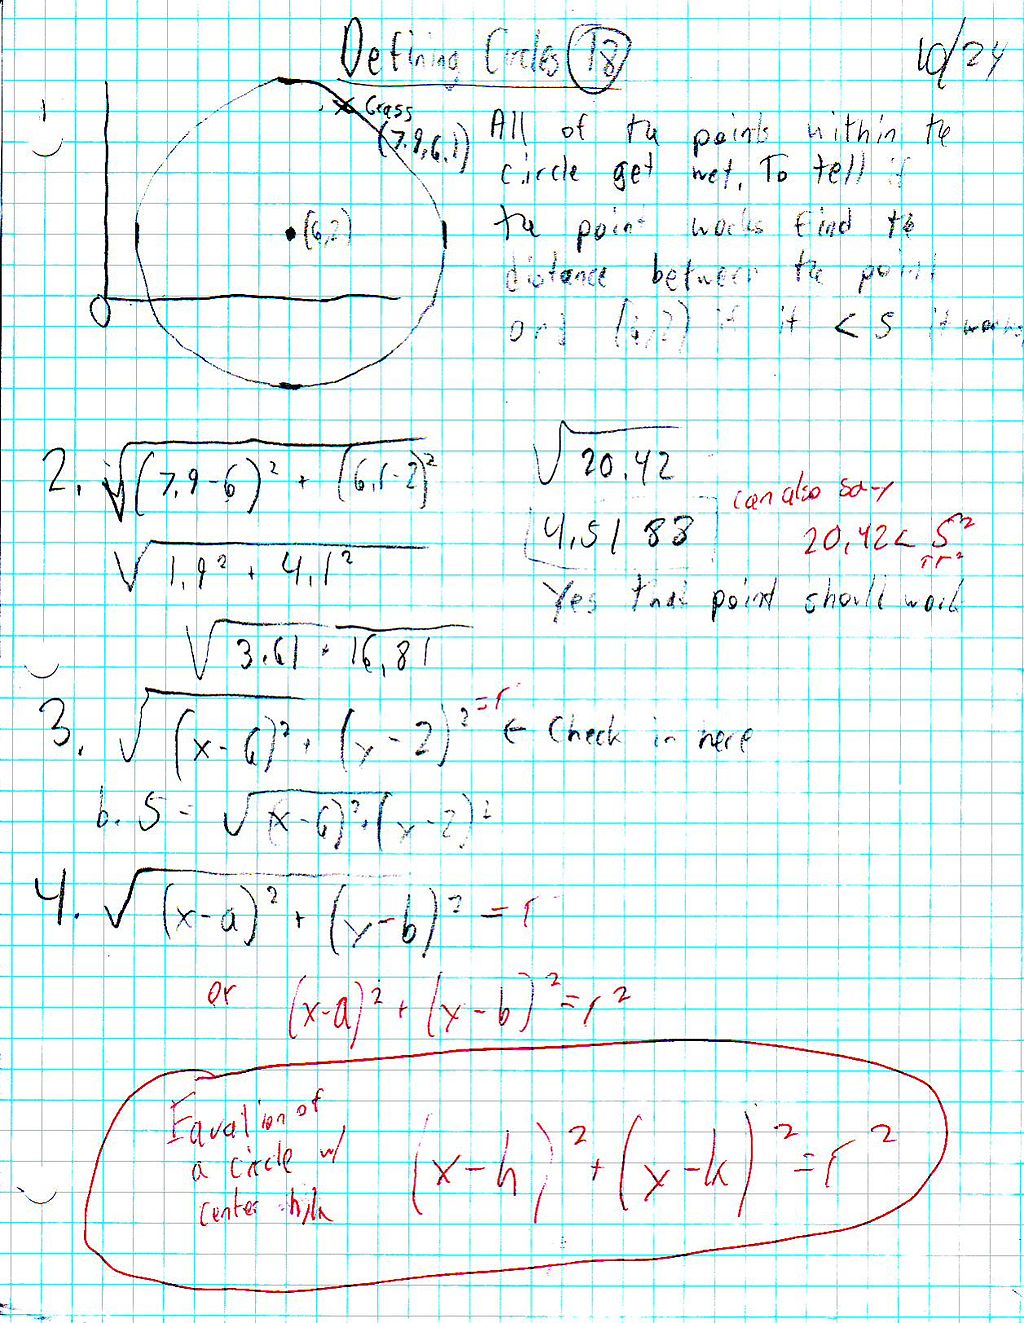 Defining Circles 18
10/24
1
x Grass
(7.9, 6.1)
(6,2)
0
All of the points within the
circle get wet. To tell if
the point works find the
distance between the point
and (6,2) if it < 5 it works
2. √(7.9-6)² + (6.1-2)²
√1.9² + 4.1²
√3.61 + 16.81
√20.42
4.5188
can also say
20.42 < 5²
πr²
Yes that point should work
3. √(x-6)² + (y-2)² = r ← Check in here
b. 5 = √(x-6)² + (y-2)²
4. √(x-a)² + (y-b)² = r
or (x-a)² + (y-b)² = r²
Equation of
a circle w/
center h,k
(x-h)² + (y-k)² = r²